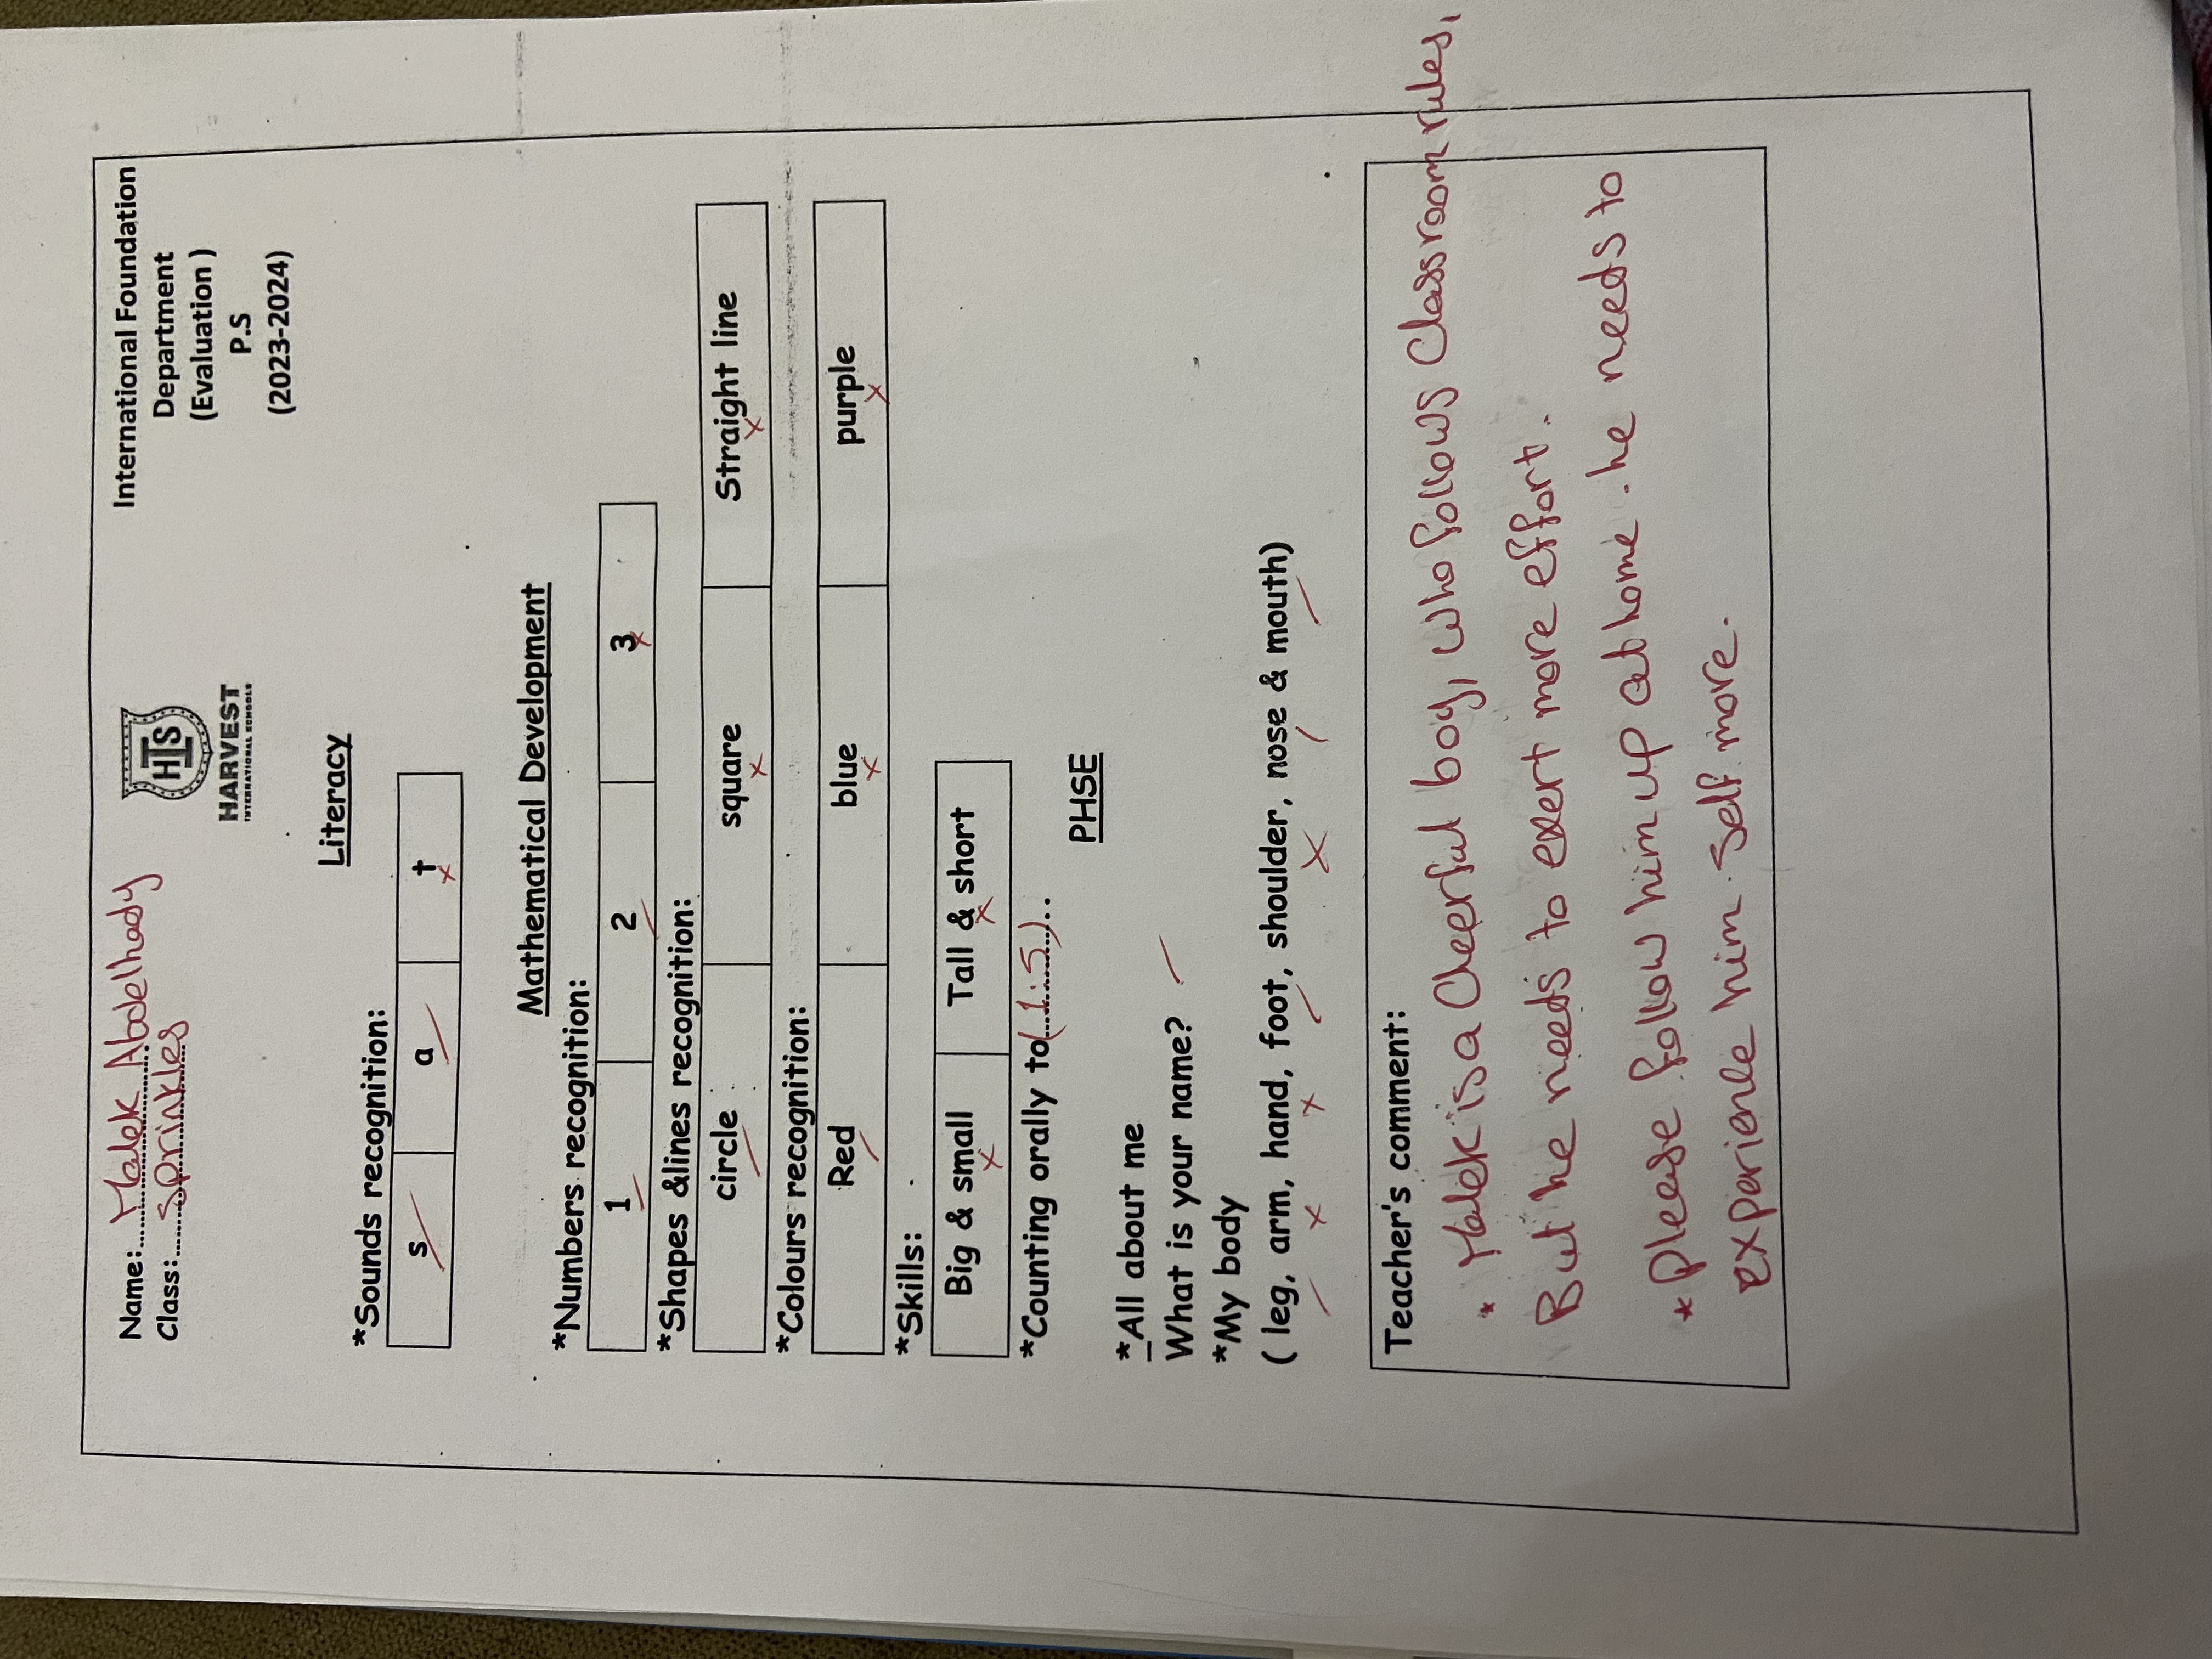 Name:....Malek Abdelhady
Class:....sprinkles
HIS
HARVEST
INTERNATIONAL SCHOOLS
International Foundation
Department
(Evaluation )
P.S
(2023-2024)
Literacy
*Sounds recognition:
s a t
Mathematical Development
*Numbers recognition:
1 2 3
*Shapes &lines recognition:
circle square Straight line
*Colours recognition:
Red blue purple
*Skills:
Big & small Tall & short
*Counting orally to(1:5)..
PHSE
*All about me
What is your name?
*My body
( leg, arm, hand, foot, shoulder, nose & mouth)
Teacher's comment:
* Malek is a Cheerful boy, who follows Classroom rules,
But he needs to exert more effort.
* please follow him up at home. he needs to
experience him self more.